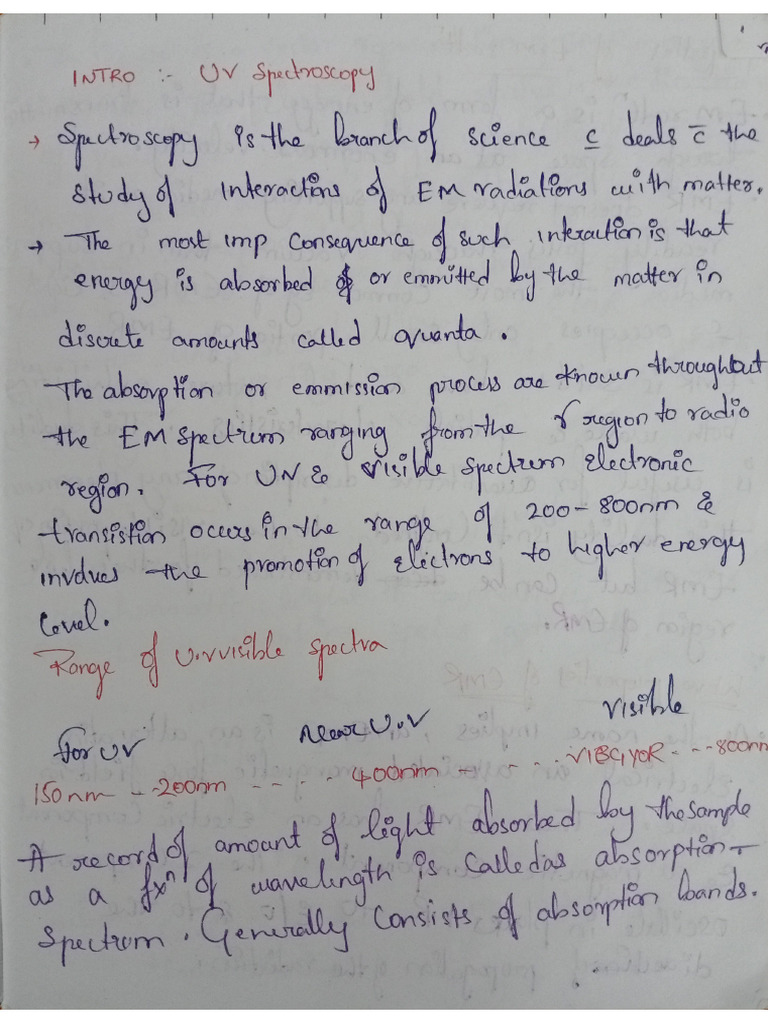 INTRO :- UV Spectroscopy
→ Spectroscopy is the branch of science c̲ deals c̅ the
study of interactins of EM radiations with matter.
→ The most imp Consequence of such interaction is that
energy is absorbed or emmitted by the matter in
discrete amounts called quanta.
The absorption or emmission process are known throughout
the EM spectrum ranging from the γ region to radio
region. For UV & visible spectrum electronic
transistion occurs in the range of 200-800nm &
involves the promotion of electrons to higher energy
level.
Range of U.V visible spectra
For UV Near U.V Visible
150nm -- 200nm - - - - 400nm - - - - VIBGYOR - - - 800nm
A record of amount of light absorbed by the sample
as a fxⁿ of wavelength is called as absorption-
spectrum. Generally consists of absorption bands.